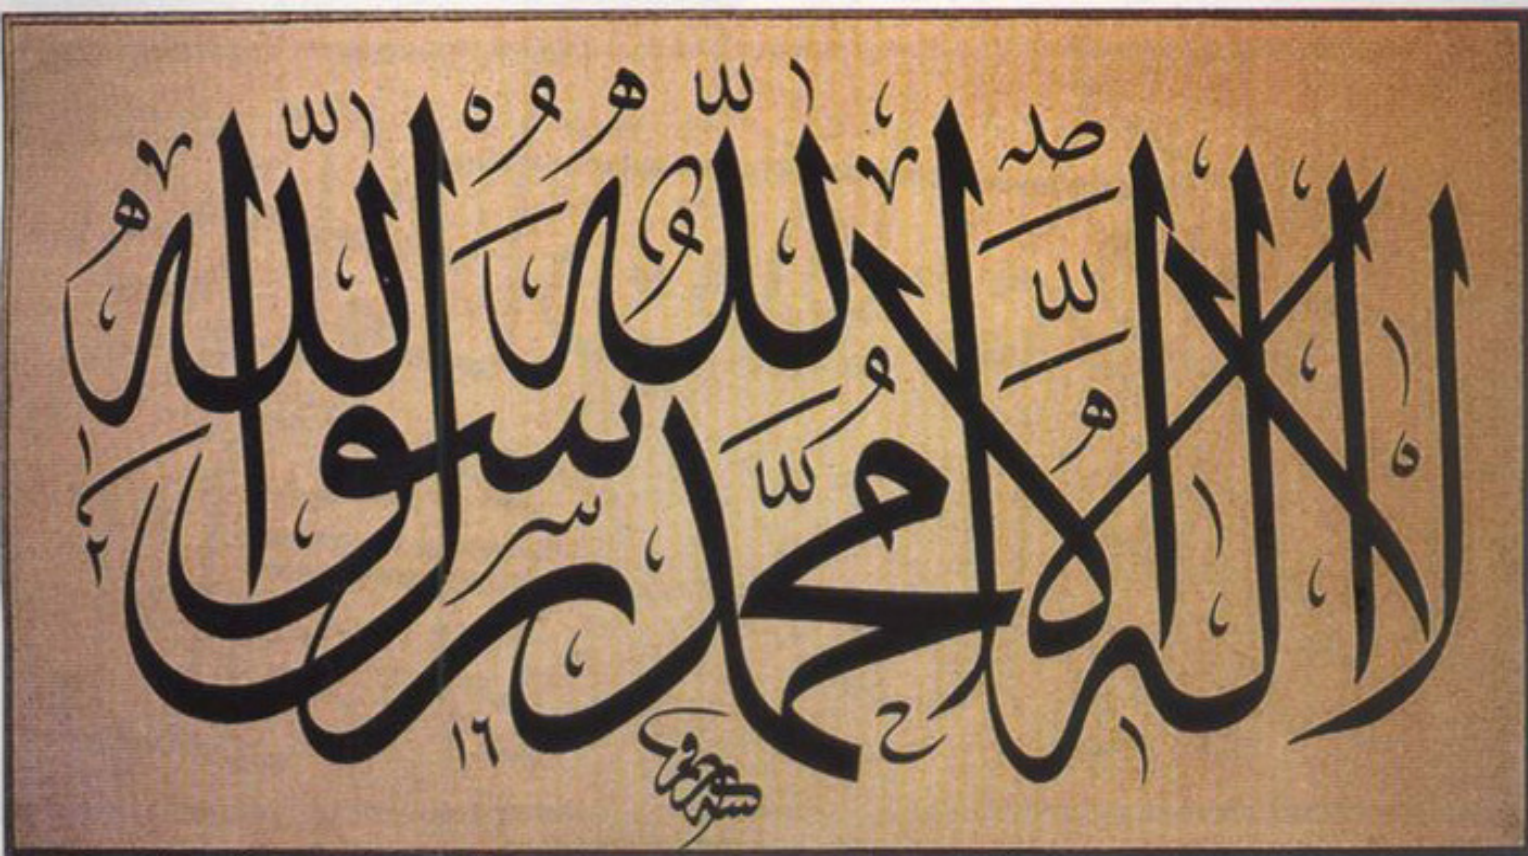 لا اله الا الله محمد رسول الله
١٢
١٦